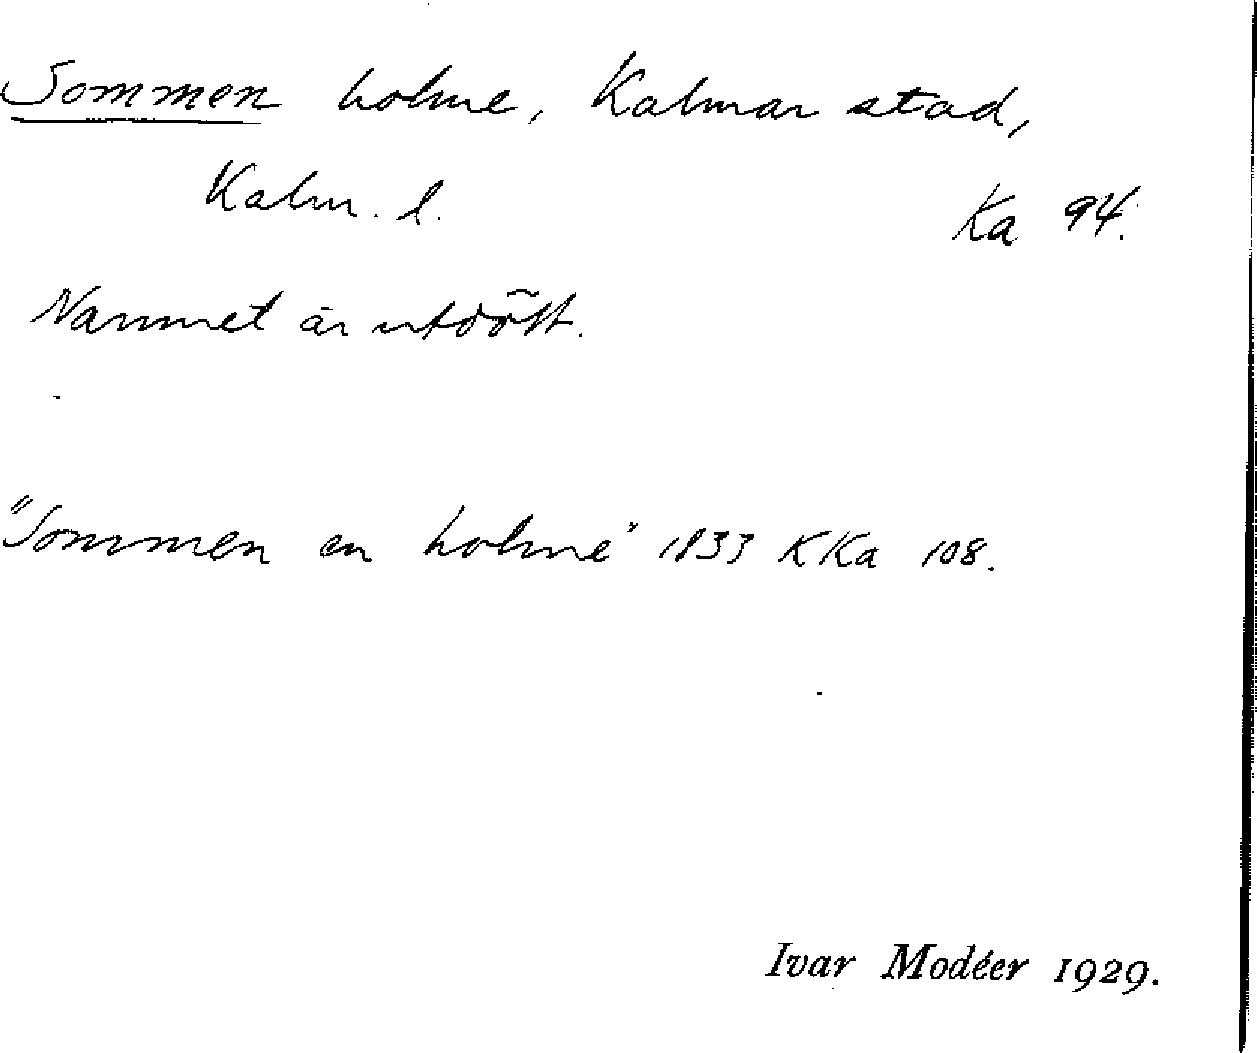 Sommen holme, Kalmar stad,
Kalm. l.
Ka 94.
Namnet är utdött.
"Sommen en holme" 1833 KKa 108.
Ivar Modéer 1929.